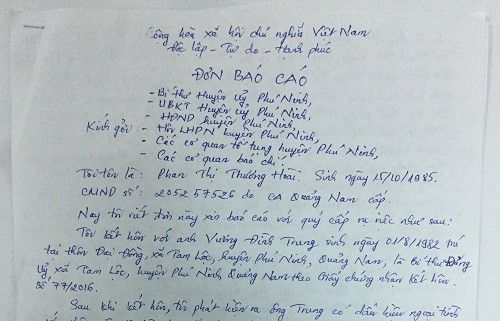 Cộng hòa xã hội chủ nghĩa Việt Nam
Độc lập - Tự do - Hạnh phúc
ĐƠN BÁO CÁO
- Bí thư Huyện ủy Phú Ninh,
- UBKT Huyện ủy Phú Ninh,
- HĐND huyện Phú Ninh,
Kính gởi: - Hội LHPN huyện Phú Ninh,
- Các cơ quan tố tụng huyện Phú Ninh,
- Các cơ quan báo chí.
Tôi tên là: Phan Thị Thương Hoài. Sinh ngày 15/10/1985.
CMND số: 205257526 do CA Quảng Nam cấp.
Nay tôi viết đơn này xin báo cáo với quý cấp vụ việc như sau:
Tôi kết hôn với anh Vương Đình Trung sinh ngày 01/8/1982 trú
tại thôn Đại Đồng, xã Tam Lộc, huyện Phú Ninh, Quảng Nam, là Bí thư Đảng
ủy xã Tam Lộc, huyện Phú Ninh Quảng Nam theo Giấy chứng nhận kết hôn.
Số 77/2016.
Sau khi kết hôn, tôi phát hiện ra ông Trung có dấu hiệu ngoại tình